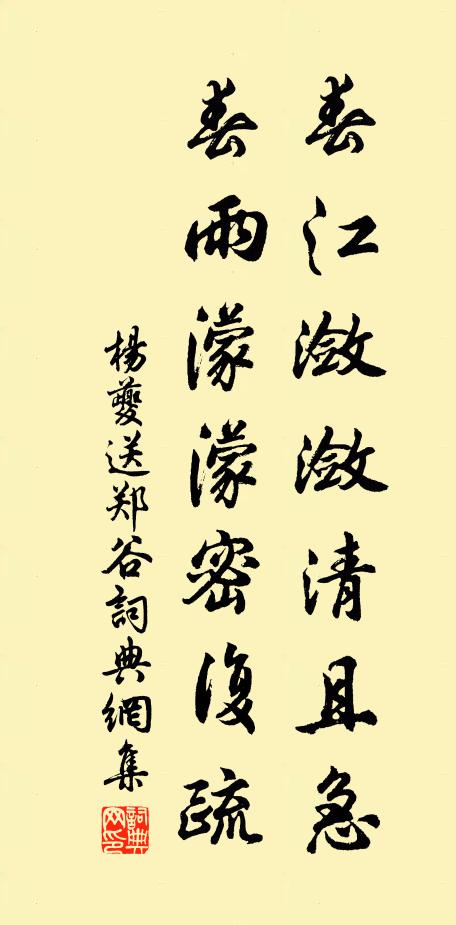 春江潋潋清且急
春雨濛濛密復疏
楊夔送郑谷詞典網集
詞典網印